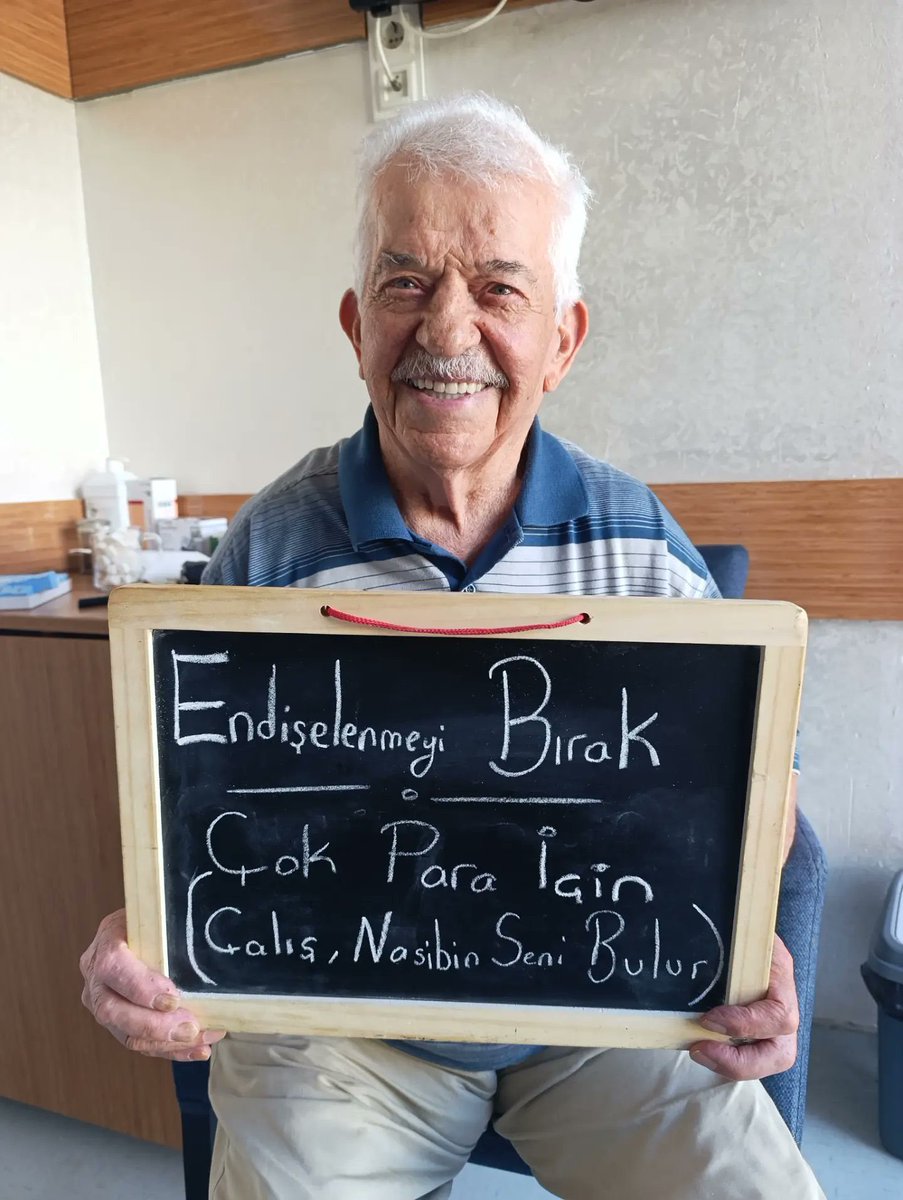 Endişelenmeyi Bırak
Çok Para İçin
(Çalış, Nasibin Seni Bulur)